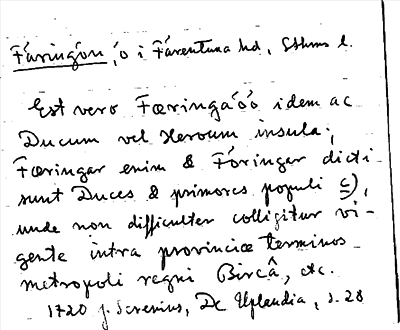 Färingön, ö i Färentuna hd, Sthms l.
Est vero Fœringaöö idem ac
Ducum vel Heroum insula;
Fœringar enim & Föringar dicti
sunt Duces & primores populi c),
unde non difficulter colligitur vi-
gente intra provinciæ terminos
metropoli regni Bircâ, etc.
1720 J. Serenius, De Uplandia, s. 28